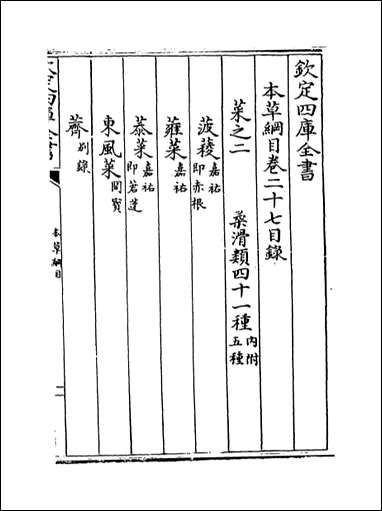 欽定四庫全書
本草綱目卷二十七目錄
菜之二 柔滑類四十一種內附五種
菠薐嘉祐即赤根
蕹菜嘉祐
菾菜嘉祐即莙薘
東風菜開寶
薺別錄
欽定四庫全書
本草綱目